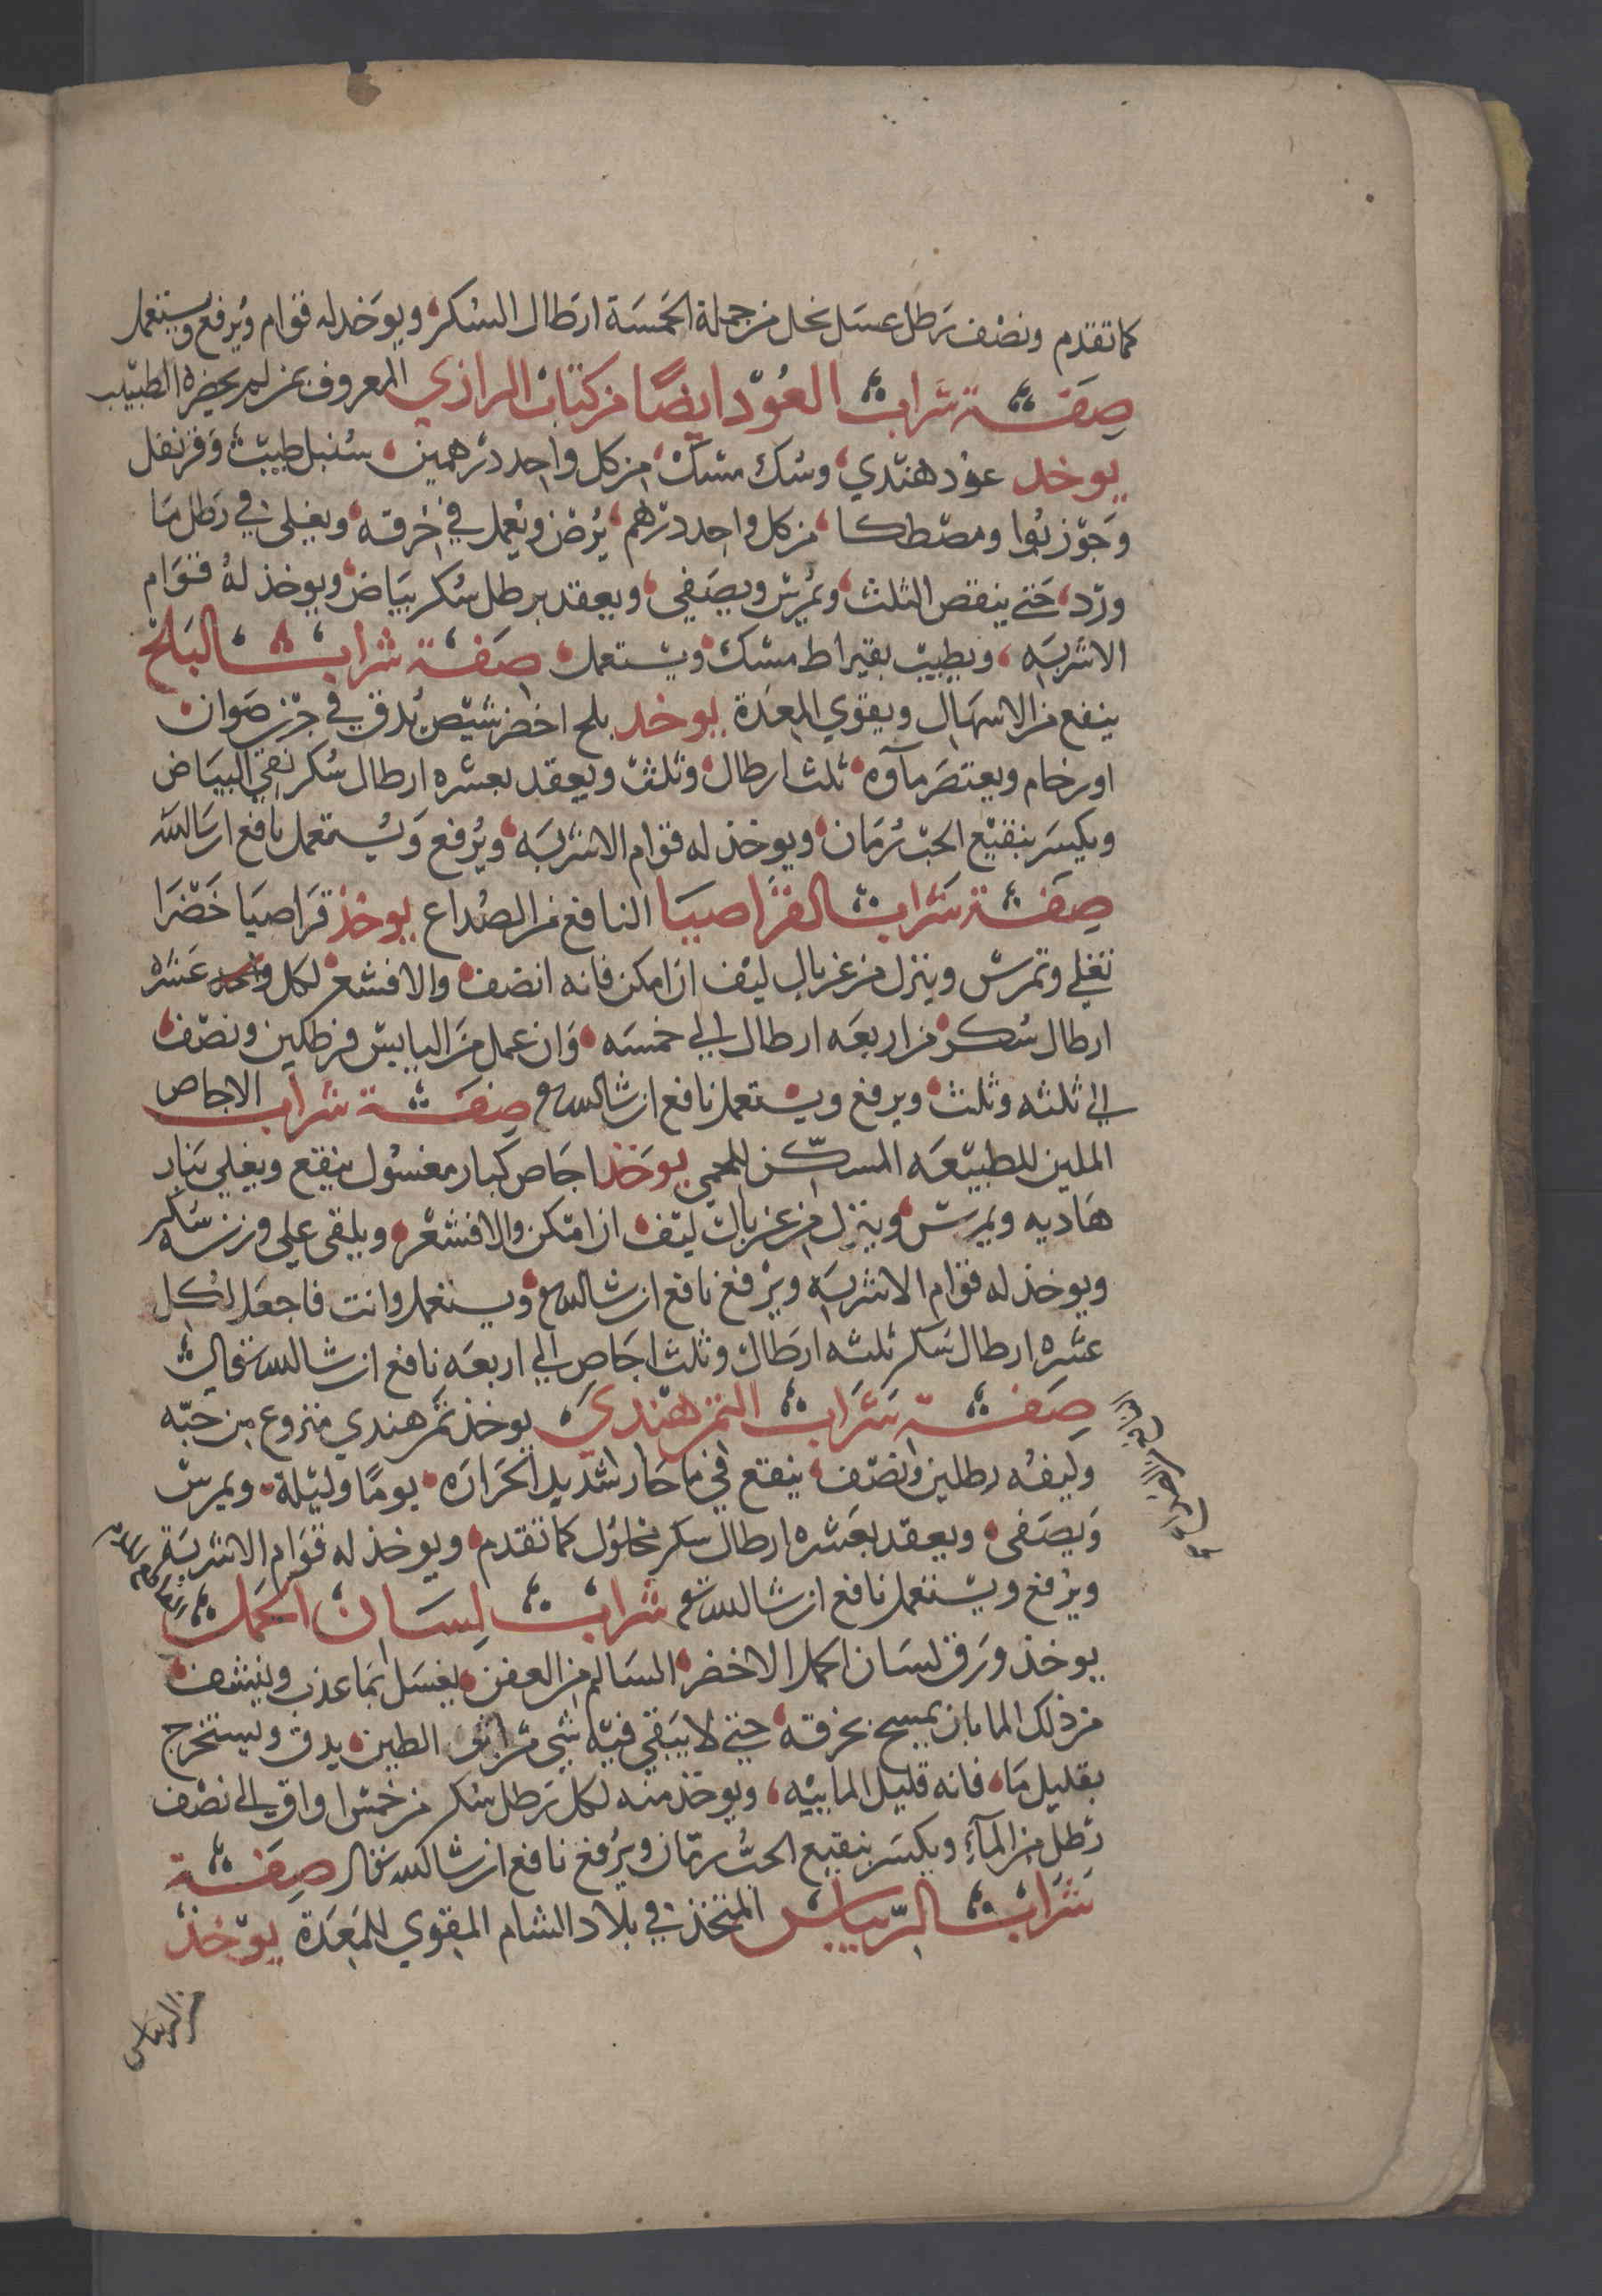 كما تقدم ونصف رطل عسل نحل من جملة الخمسة ارطال السكر ويوخد له قوام ويرفع ويستعمل
صفة شراب العود ايضًا من كتاب الرازي المعروف بمن لم يحضره الطبيب
يوخد عود هندي وسك مسك من كل واحد درهمين سنبل طيب وقرنفل
وجوزبوا ومصطكا من كل واحد درهم يرض ويعمل في خرقه ويغلى في رطل ما
ورد حتى ينقص الثلث ويمرس ويصفى ويعقد برطل سكر بياض ويوخذ له قوام
الاشربه ويطيب بقيراط مسك ويستعمل صفة شراب البلح
ينفع من الاسهال ويقوي المعدة يوخد بلح اخضر شيص يدق في جرن صوان
او رخام ويعتصر مآوه ثلث ارطال وثلث ويعقد بعشره ارطال سكر نقي البياض
ويكسر بنقيع الحب رمان ويوخذ له قوام الاشربه ويرفع ويستعمل نافع ان شا الله
صفة شراب القراصيا النافع من الصداع يوخذ قراصيا خضرا
تغلى وتمرس وينزل من غربال ليف ان امكن فانه انضف والا فشعر لكل عشره
ارطال سكر من اربعه ارطال الى خمسه وان عمل من اليابس فرطلين ونصف
الى ثلثه وثلث ويرفع ويستعمل نافع ان شا الله صفة شراب الاجاص
الملين للطبيعه المسكن للحمى يوخذ اجاص كبار مغسول ينقع ويغلي بنار
هاديه ويمرس وينزل من غربال ليف ان امكن والا فشعر ويلقى على وزنه سكر
ويوخذ له قوام الاشربه ويرفع نافع ان شا الله ويستعمل وانت فاجعل لكل
عشره ارطال سكر ثلثه ارطال وثلث اجاص الى اربعه نافع ان شا الله تعالى
صفة شراب التمر هندي يوخذ تمر هندي منزوع من حبه
وليفه رطلين ونصف ينقع في ما حار شديد الحراره يومًا وليلة ويمرس
ويصفى ويعقد بعشره ارطال سكر محلول كما تقدم ويوخذ له قوام الاشربة
ويرفع ويستعمل نافع ان شا الله شراب لسان الحمل
يوخذ ورق لسان الحمل الاخضر السالم من العفن يغسل بما عذب وينشف
من ذلك الما بان يمسح بخرقه حتى لا يبقى فيه شي من اثر الطين يدق ويستخرج
بقليل ما فانه قليل المابيه ويوخذ منه لكل رطل سكر من خمس اواق الى نصف
رطل من المآء ويكسر بنقيع الحب رمان ويرفع نافع ان شا الله تعالى صفة
شراب الريباس المتخذ في بلاد الشام المقوي للمعدة يوخذ
من الريباس